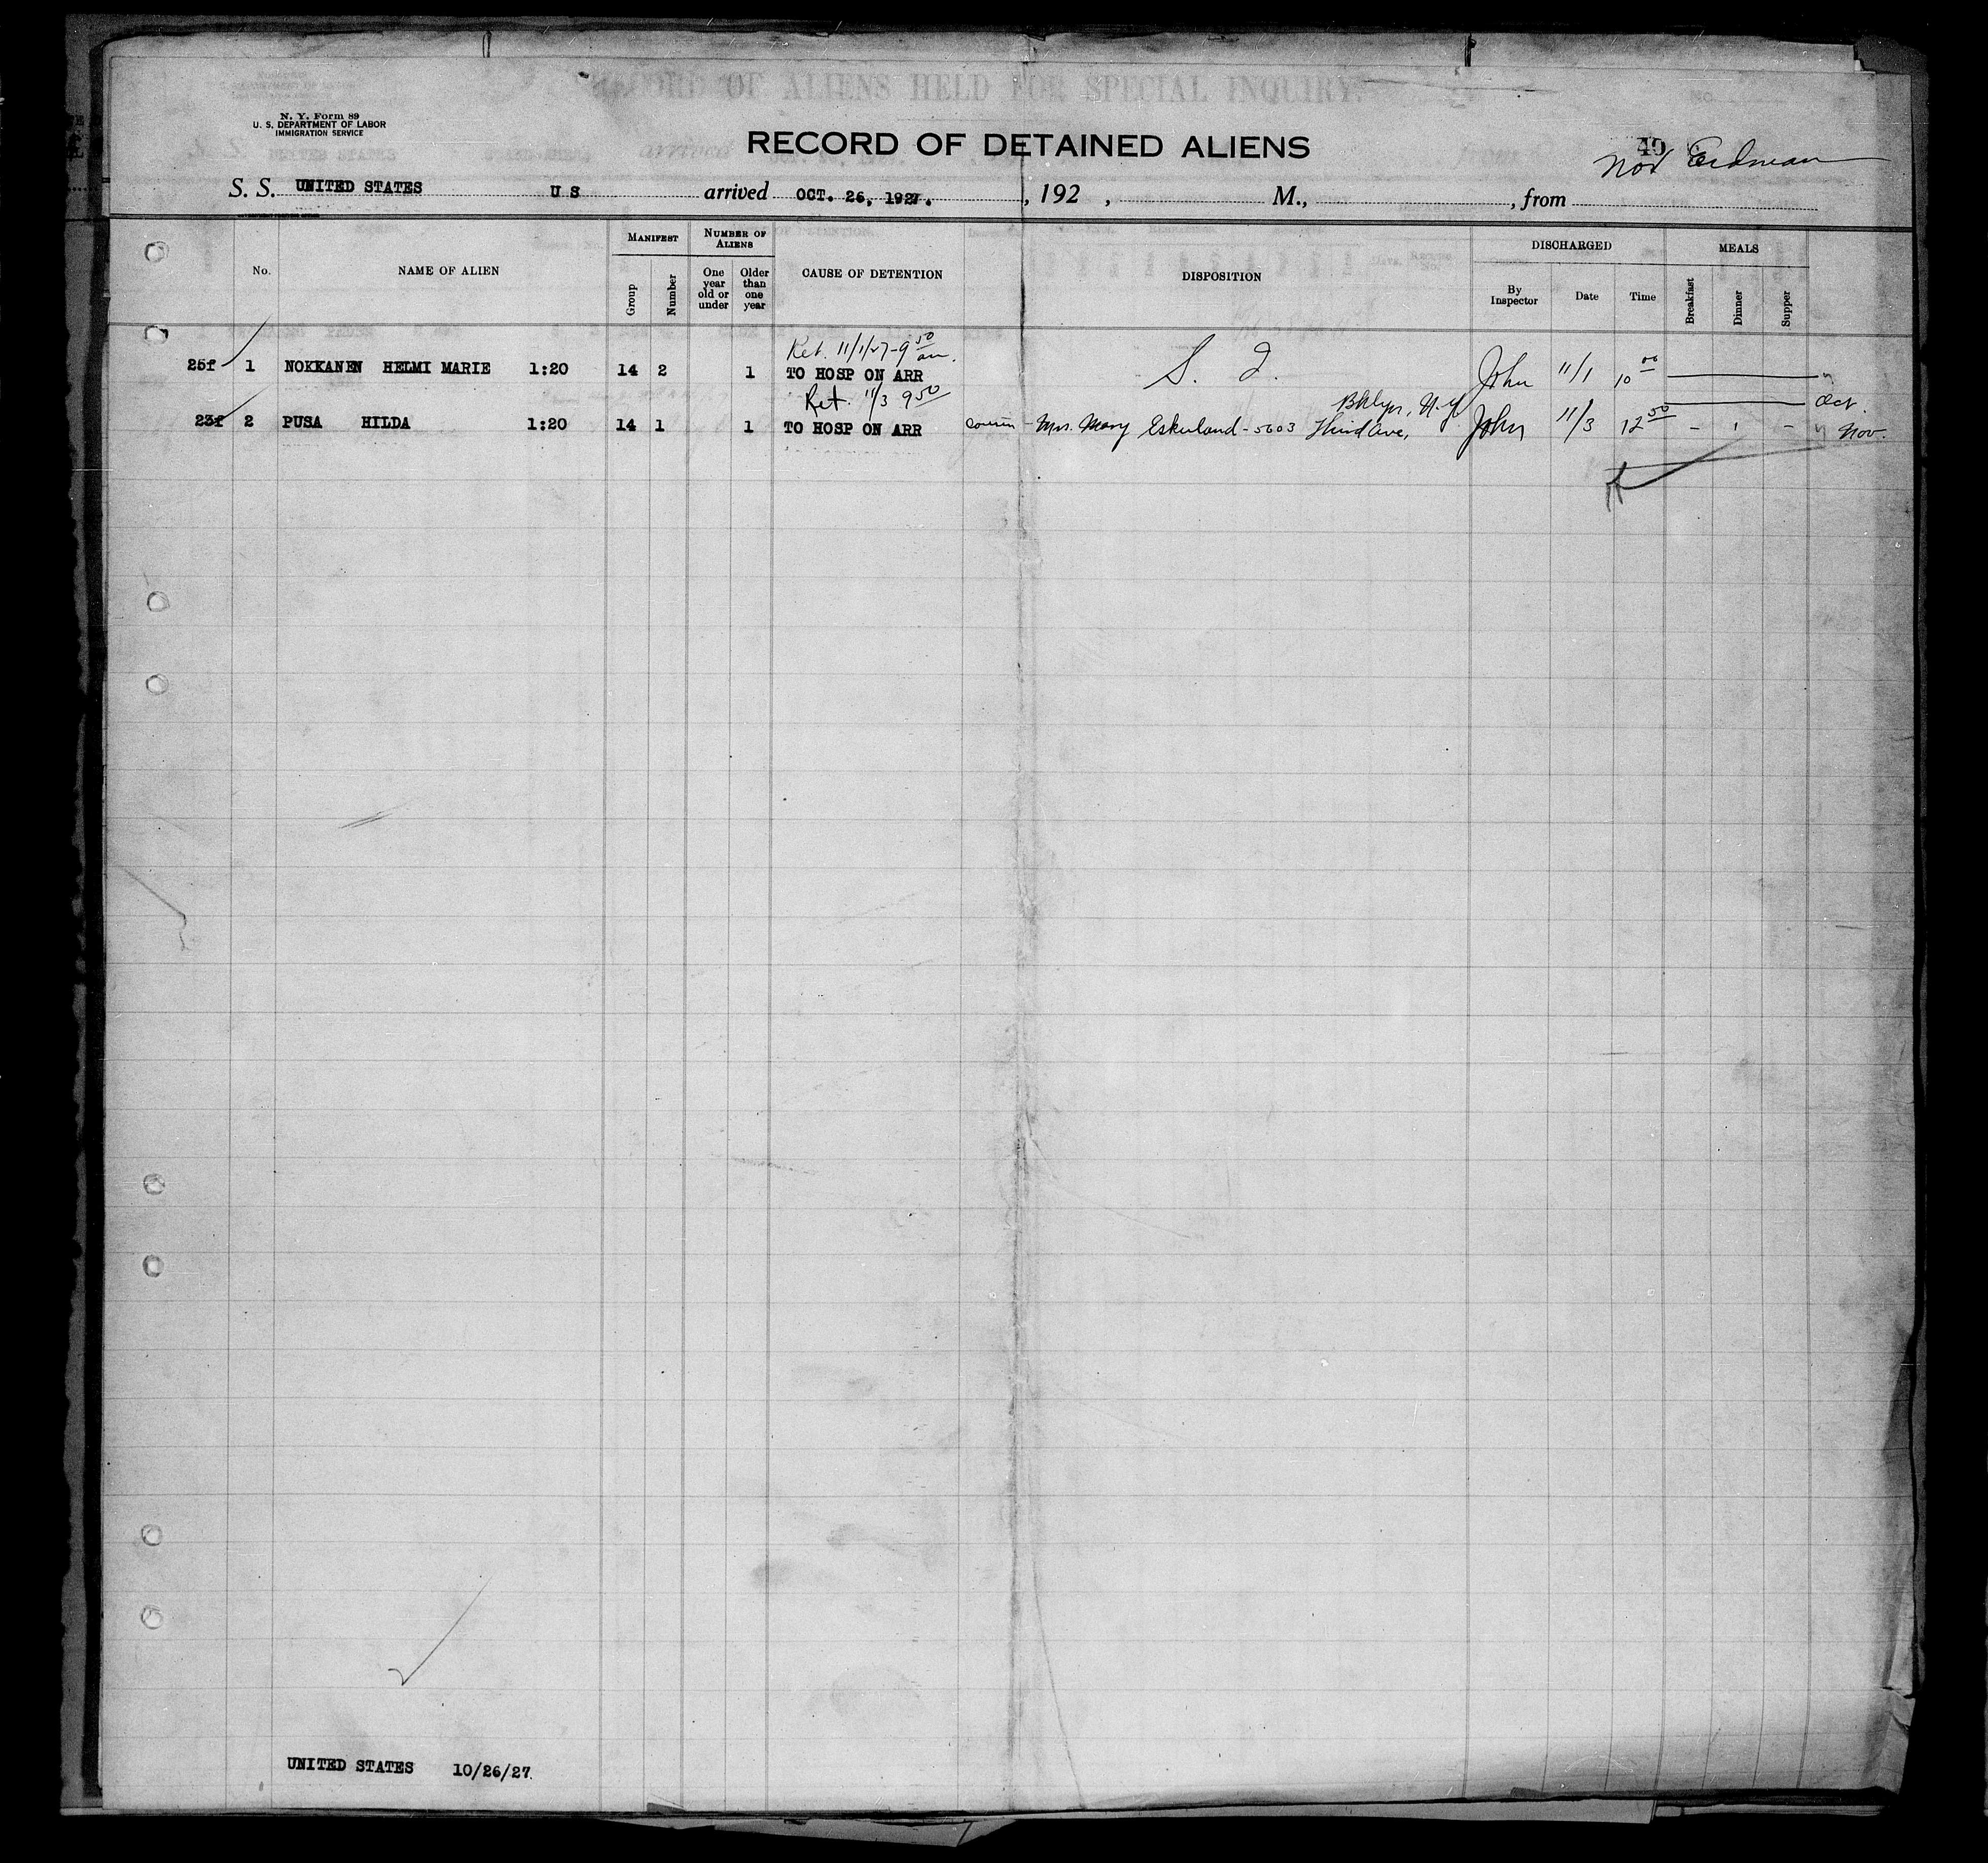 RECORD OF ALIENS HELD FOR SPECIAL INQUIRY.
N. Y. Form 89
U. S. DEPARTMENT OF LABOR
IMMIGRATION SERVICE
RECORD OF DETAINED ALIENS
40
Erdman
S. S. UNITED STATES U S arrived OCT. 26, 1927. , 192 , M., , from
No. NAME OF ALIEN MANIFEST Group Number NUMBER OF ALIENS One year old or under Older than one year CAUSE OF DETENTION DISPOSITION DISCHARGED By Inspector Date Time MEALS Breakfast Dinner Supper
Ret. 11/1/27-9 50 am.
25f 1 NOKKANEN HELMI MARIE 1:20 14 2 1 TO HOSP ON ARR S. I. John 11/1 10 00
Ret. 11/3 9 50 Bklyn, N.Y. Oct.
23f 2 PUSA HILDA 1:20 14 1 1 TO HOSP ON ARR cousin - Mrs. Mary Eskeland - 5603 Third Ave, John 11/3 12 50 - 1 - Nov.
UNITED STATES 10/26/27.